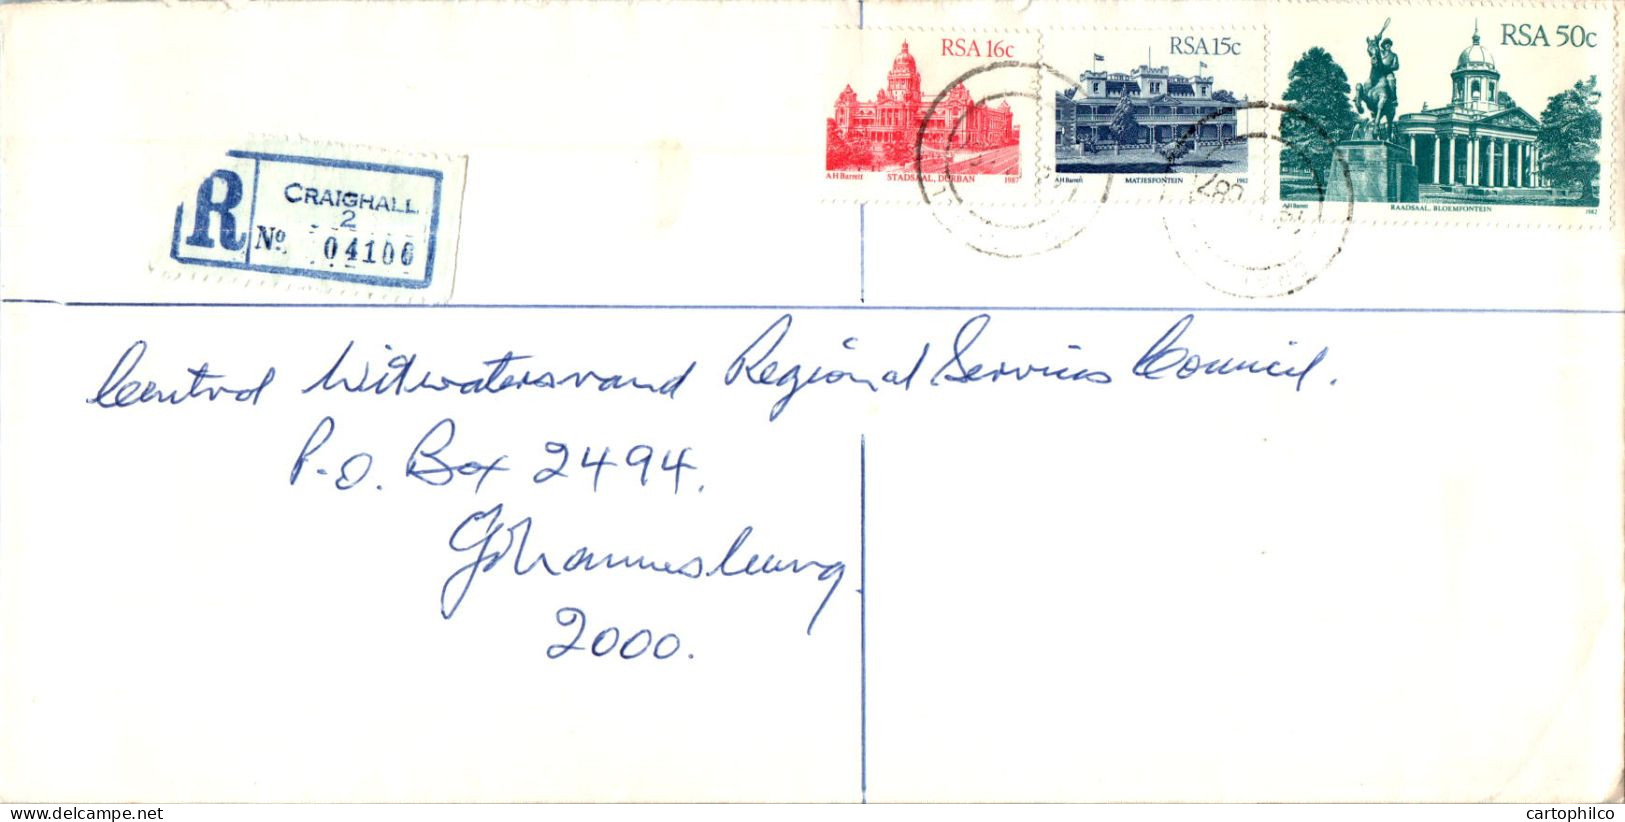 RSA 16c
A H Barrett STADSAAL, DURBAN 1987
RSA 15c
A H Barrett MATJESFONTEIN 1982
RSA 50c
A H Barrett RAADSAAL, BLOEMFONTEIN 1982
R
CRAIGHALL
2
No. 04106
Central Witwatersrand Regional Services Council.
P.O. Box 2494.
Johannesburg
2000.
cartophilco